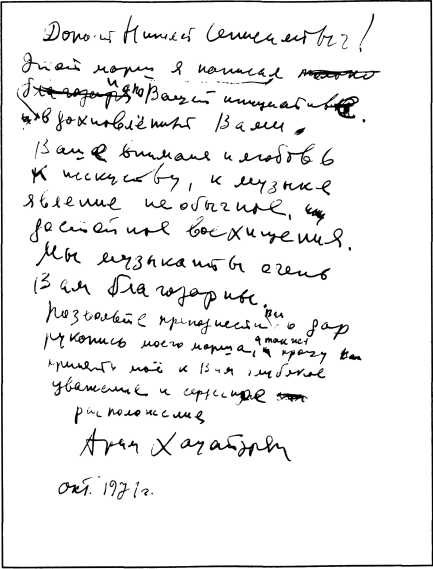 Дорогой Никита Семенович!
Этот марш я написал
по Вашей инициативе
вдохновлённый Вами.
Ваше внимание и любовь
к искусству, к музыке
явление необычное,
достойное восхищения.
Мы музыканты очень
Вам благодарны.
Позвольте преподнести Вам в дар
рукопись моего марша, а также прошу Вас
принять моё к Вам глубокое
уважение и сердечное
расположение
Арам Хачатурян
окт. 1971г.